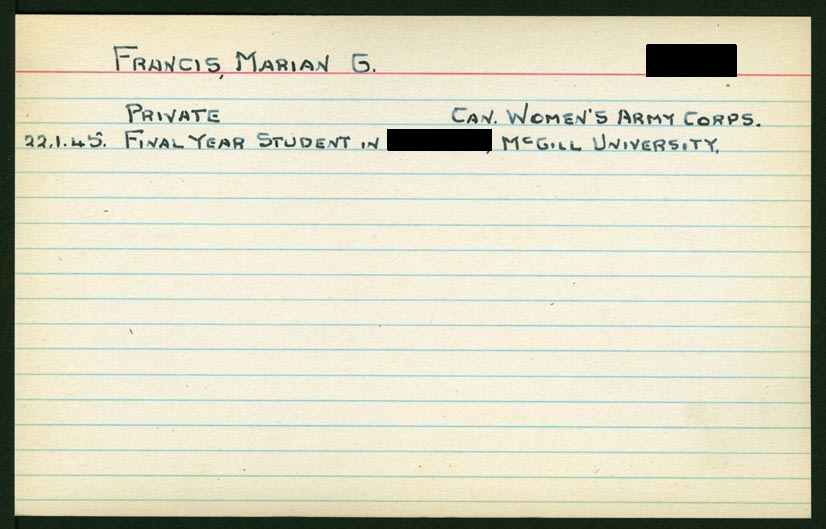 FRANCIS, MARIAN G.
PRIVATE CAN. WOMEN'S ARMY CORPS.
22.1.45. FINAL YEAR STUDENT IN , McGILL UNIVERSITY.